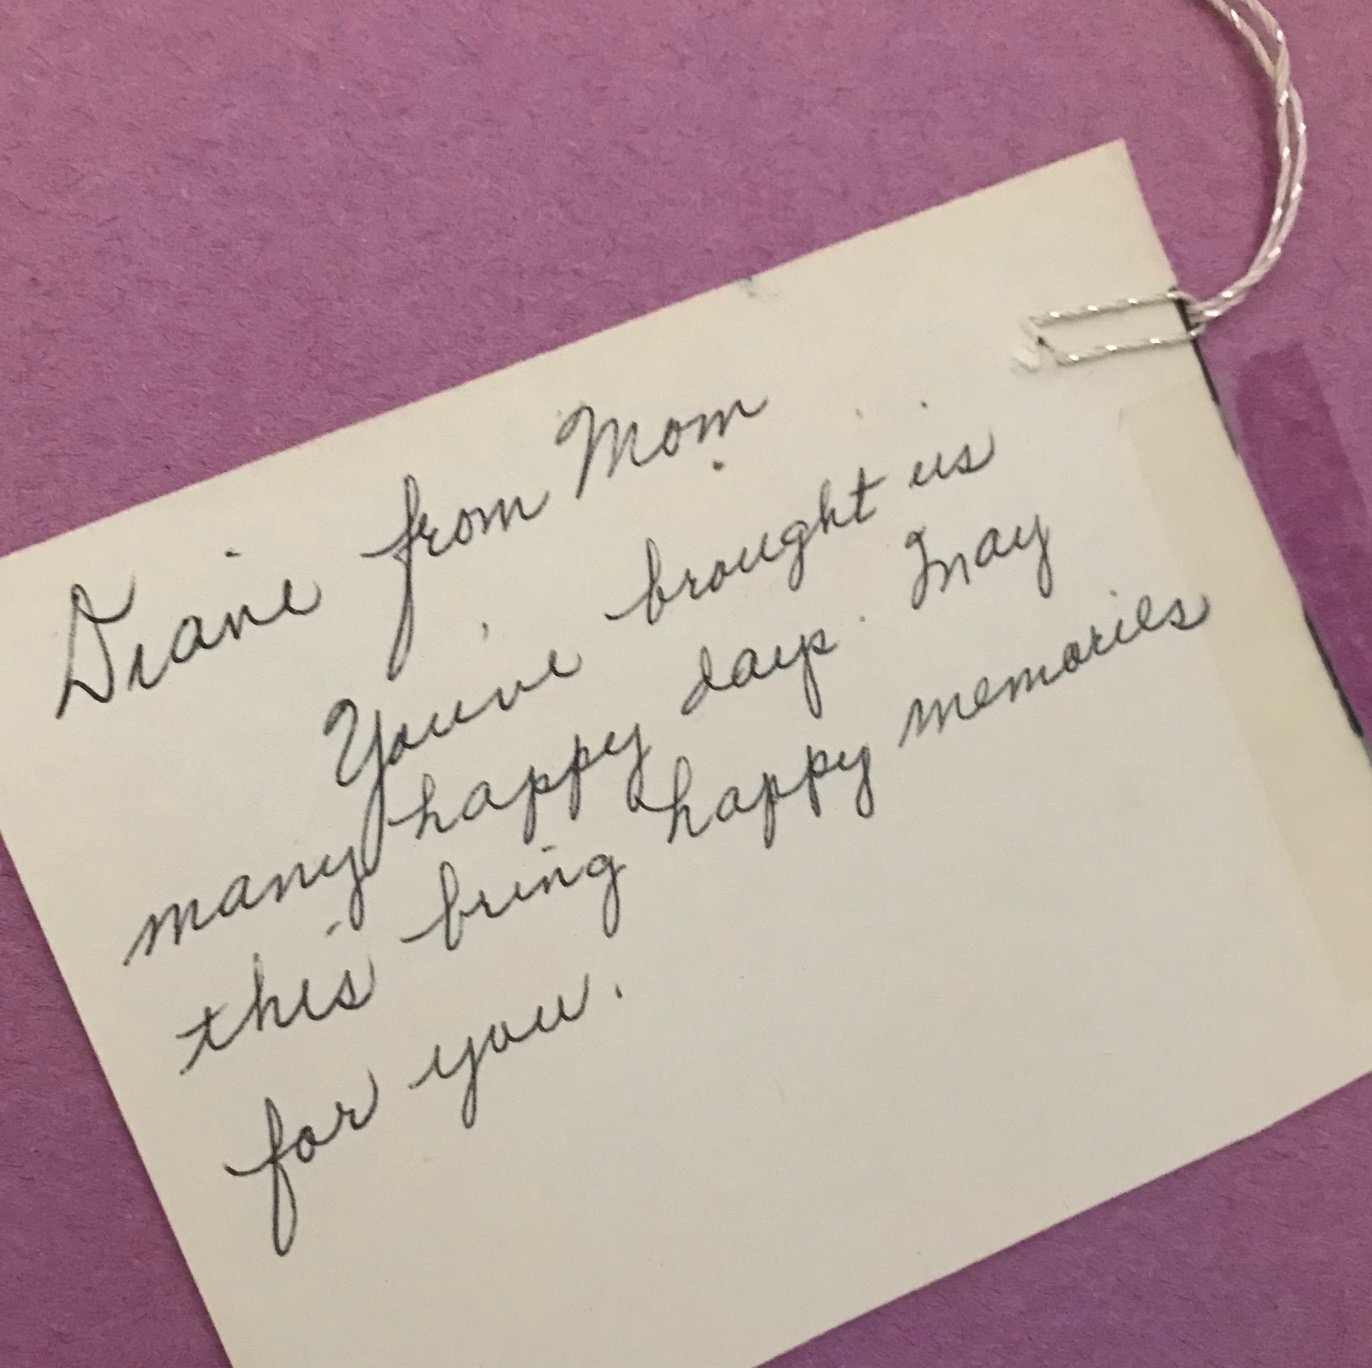 Diane from Mom
You've brought us
many happy days. May
this bring happy memories
for you.